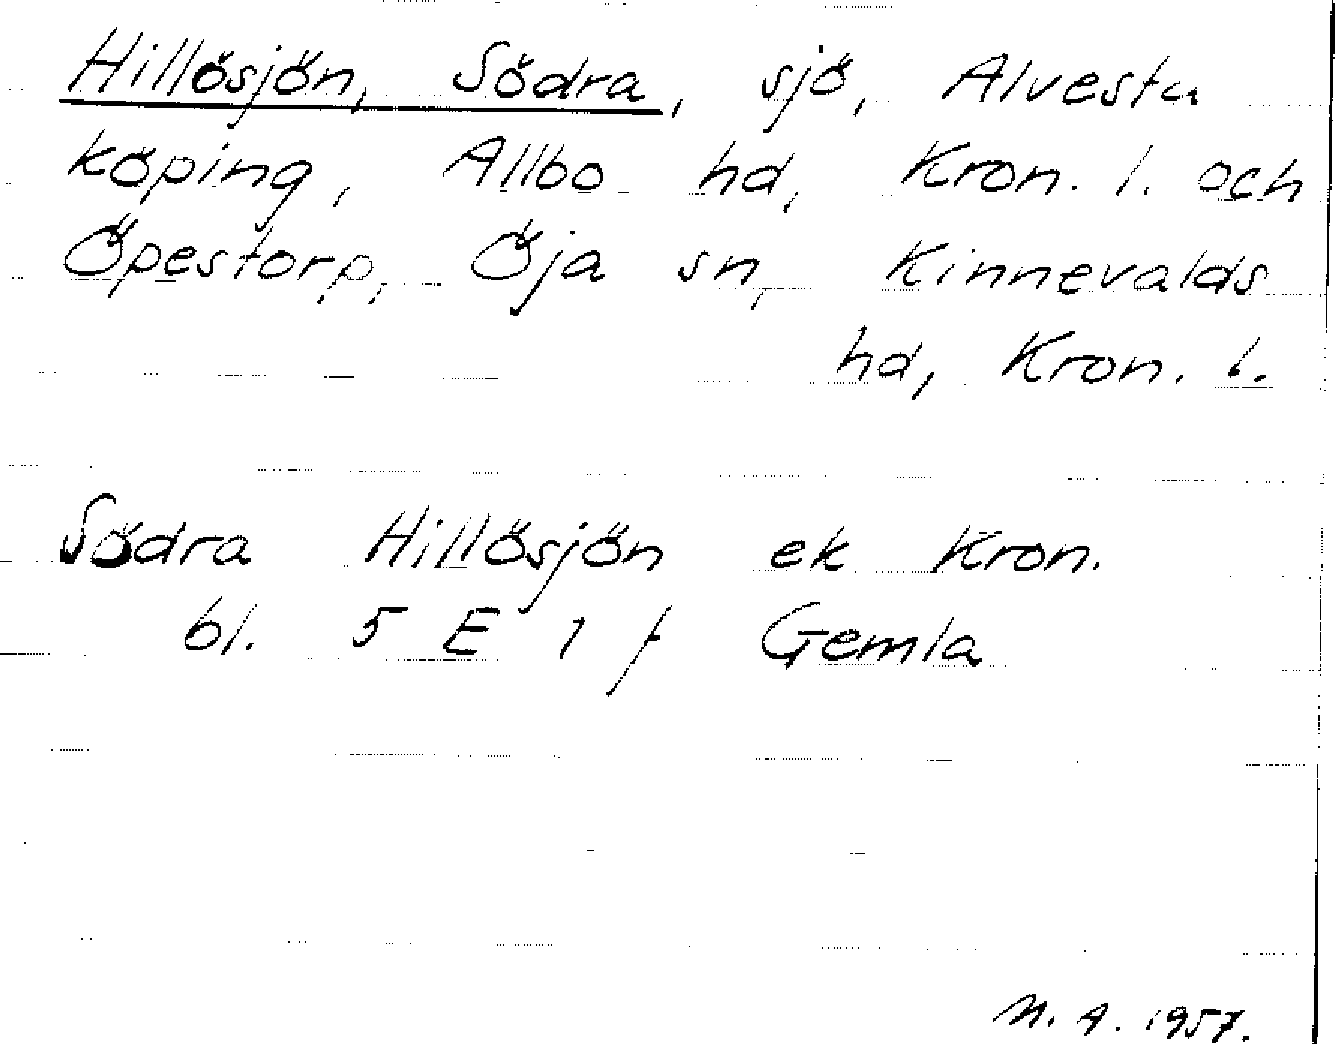 Hillösjön, Södra, sjö, Alvesta
köping, Allbo hd, Kron. l. och
Öpestorp, Öja sn, Kinnevalds
hd, Kron. l.
Södra Hillösjön ek Kron.
bl. 5 E 1 f Gemla
M. A. 1957.